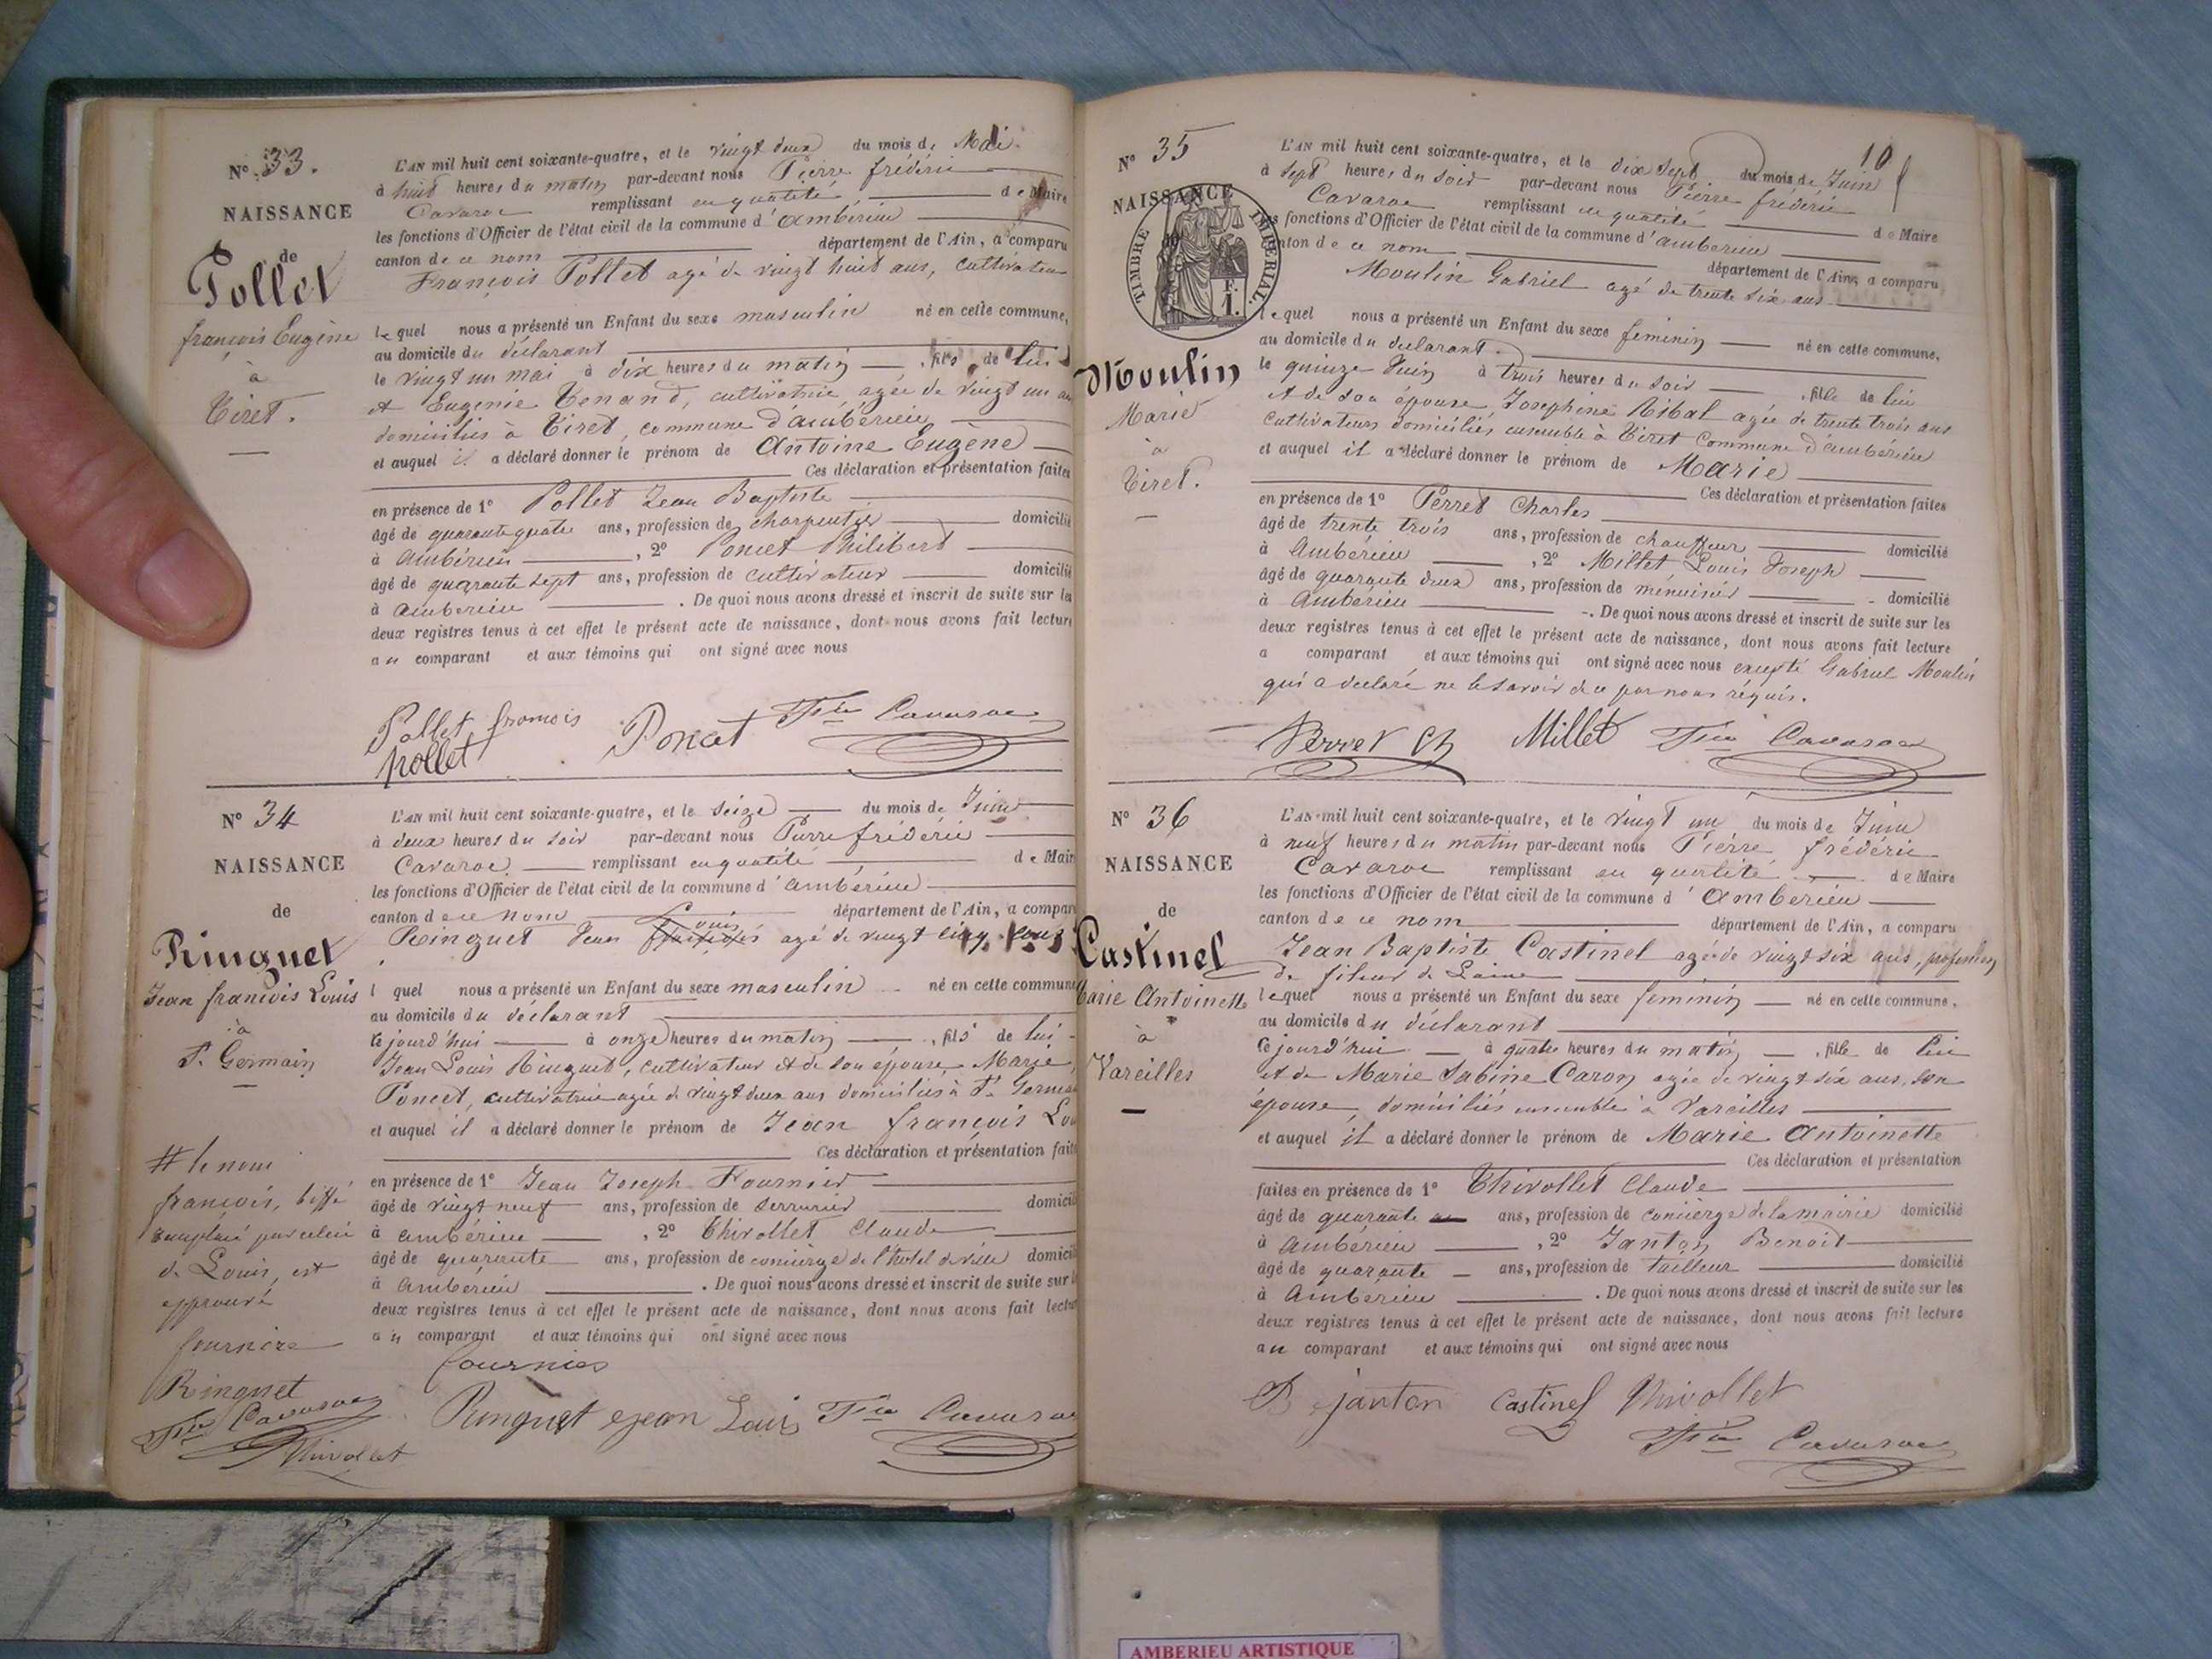 N° 33.
NAISSANCE
de
Pollet
françois Eugène
à
Tiret.
L'AN mil huit cent soixante-quatre, et le vingt deux du mois de Mai
à huit heures du matin par-devant nous Pierre fréderic
Cavaroc remplissant en qualité de Maire
les fonctions d'Officier de l'état civil de la commune d'Ambérieu
canton de ce nom département de l'Ain, a comparu
François Pollet agé de vingt huit ans, cultivateur
lequel nous a présenté un Enfant du sexe masculin né en cette commune,
au domicile du déclarant
le vingt un mai à dix heures du matin, fils de lui
et Eugenie Tenand, cultivatrice, agée de vingt un ans
domiciliés à Tiret, commune d'ambérieu
et auquel il a déclaré donner le prénom de Antoine Eugène
Ces déclaration et présentation faites
en présence de 1° Pollet Jean Baptiste
âgé de quarante quatre ans, profession de charpentier domicilié
à Ambérieu, 2° Poncet Philibert
âgé de quarante sept ans, profession de cultivateur domicilié
à Ambérieu. De quoi nous avons dressé et inscrit de suite sur les
deux registres tenus à cet effet le présent acte de naissance, dont nous avons fait lecture
au comparant et aux témoins qui ont signé avec nous
Pollet francois Poncet Fric Cavaroc
pollet
N° 34
NAISSANCE
de
Rinquet
Jean françois Louis
à
St. Germain
# le nom
françois, biffé
remplacé par celui
de Louis, est
approuvé
fournier
Rinquet
Fric Cavaroc
Thivollet
L'AN mil huit cent soixante-quatre, et le seize du mois de Juin
à deux heures du soir par-devant nous Pierre fréderic
Cavaroc remplissant en qualité de Maire
les fonctions d'Officier de l'état civil de la commune d'ambérieu
canton de ce nom département de l'Ain, a comparu
Louis
Rinquet Jean françois agé de vingt cinq ans
lquel nous a présenté un Enfant du sexe masculin né en cette commune
au domicile du déclarant
cejourd'hui à onze heures du matin, fils de lui
Jean Louis Rinquet, cultivateur et de son épouse, Marie
Poncet, cultivatrice agée de vingt deux ans domiciliés à St. Germain
et auquel il a déclaré donner le prénom de Jean françois Lou
Ces déclaration et présentation faites
en présence de 1° Jean Joseph Fournier
âgé de vingt neuf ans, profession de serrurier domicilié
à ambérieu, 2° Thivollet Claude
âgé de quarante ans, profession de concierge de l'hotel de ville domicilié
à Ambérieu. De quoi nous avons dressé et inscrit de suite sur les
deux registres tenus à cet effet le présent acte de naissance, dont nous avons fait lecture
au comparant et aux témoins qui ont signé avec nous
fournier
Rinquet Jean Louis Fric Cavaroc
10
N° 35
NAISSANCE
TIMBRE IMPERIAL.
F.
1.
Moulin
Marie
à
Tiret.
L'AN mil huit cent soixante-quatre, et le dix sept du mois de Juin
à sept heures du soir par-devant nous Pierre fréderic
Cavaroc remplissant en qualité de Maire
les fonctions d'Officier de l'état civil de la commune d'ambérieu
canton de ce nom département de l'Ain, a comparu
Moulin Gabriel agé de trente six ans
lequel nous a présenté un Enfant du sexe féminin né en cette commune,
au domicile du déclarant.
le quinze Juin à trois heures du soir, fille de lui
et de son épouse, Josephine Ribal agée de trente trois ans
cultivateurs domiciliés ensemble à Tiret commune d'ambérieu
et auquel il a déclaré donner le prénom de Marie
Ces déclaration et présentation faites
en présence de 1° Perret Charles
âgé de trente trois ans, profession de chauffeur domicilié
à Ambérieu, 2° Millet Louis Joseph
âgé de quarante deux ans, profession de ménuisier domicilié
à Ambérieu. De quoi nous avons dressé et inscrit de suite sur les
deux registres tenus à cet effet le présent acte de naissance, dont nous avons fait lecture
a comparant et aux témoins qui ont signé avec nous excepté Gabriel Moulin
qui a declaré ne le savoir de ce par nous réquis.
Perret Ch Millet Fric Cavaroc
N° 36
NAISSANCE
de
Castinel
Marie Antoinette
à
Vareilles
L'AN mil huit cent soixante-quatre, et le vingt un du mois de Juin
à neuf heures du matin par-devant nous Pierre fréderic
Cavaroc remplissant en qualité de Maire
les fonctions d'Officier de l'état civil de la commune d'Amberieu
canton de ce nom département de l'Ain, a comparu
Jean Baptiste Castinel agé de vingt six ans, profession
de fileur de Laine
lequel nous a présenté un Enfant du sexe féminin né en cette commune.
au domicile du déclarant
Cejourd'hui à quatre heures du matin, fille de lui
et de Marie Sabine Caron agée de vingt six ans, son
épouse, domiciliés ensemble à Vareilles
et auquel il a déclaré donner le prénom de Marie Antoinette
Ces déclaration et présentation
faites en présence de 1° Thivollet Claude
âgé de quarante ans, profession de concierge de la mairie domicilié
à Ambérieu, 2° Janton Benoit
âgé de quarante ans, profession de tailleur domicilié
à Ambérieu. De quoi nous avons dressé et inscrit de suite sur les
deux registres tenus à cet effet le présent acte de naissance, dont nous avons fait lecture
au comparant et aux témoins qui ont signé avec nous
B janton Castinel Thivollet
Fric Cavaroc
AMBERIEU ARTISTIQUE